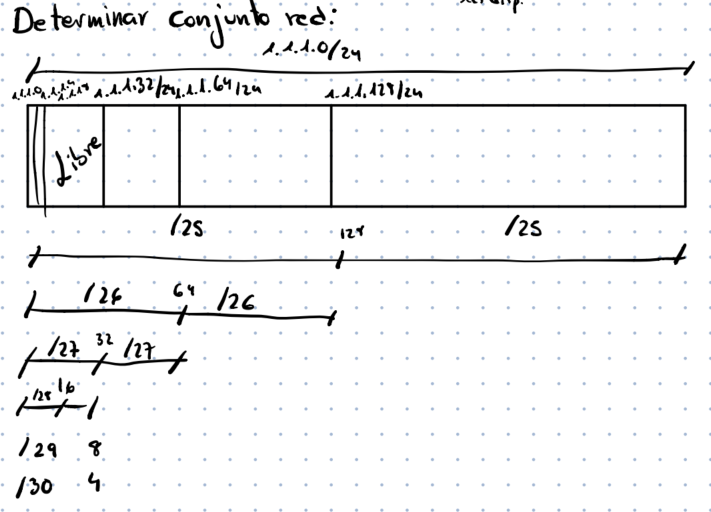 Determinar conjunto red:
1.1.1.0/24
1.1.1.32/24 1.1.1.64/24 1.1.1.128/24
Libre
/25 128 /25
/26 64 /26
/27 32 /27
/28 16
/29 8
/30 4